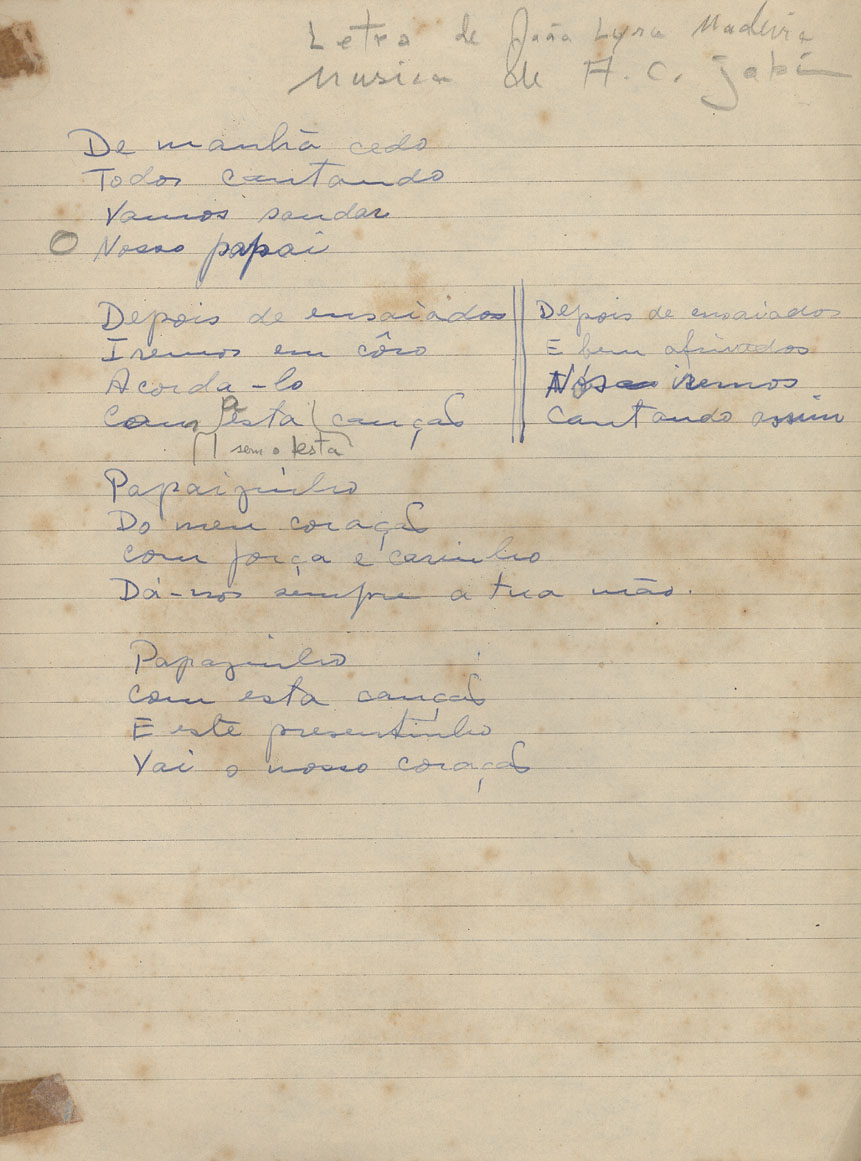 Letra de João Lyra Madeira
Musica de A. C. Jobim
De manhã cedo
Todos cantando
Vamos saudar
Nosso papai
Depois de ensaiados
Iremos em côro
Acorda-lo
Com a esta canção
sem o esta
Depois de ensaiados
E bem afinados
Nós iremos
Cantando assim
Papaizinho
Do meu coração
Com força e carinho
Dá-nos sempre a tua mão.
Papazinho
Com esta canção
E este presentinho
Vai o nosso coração